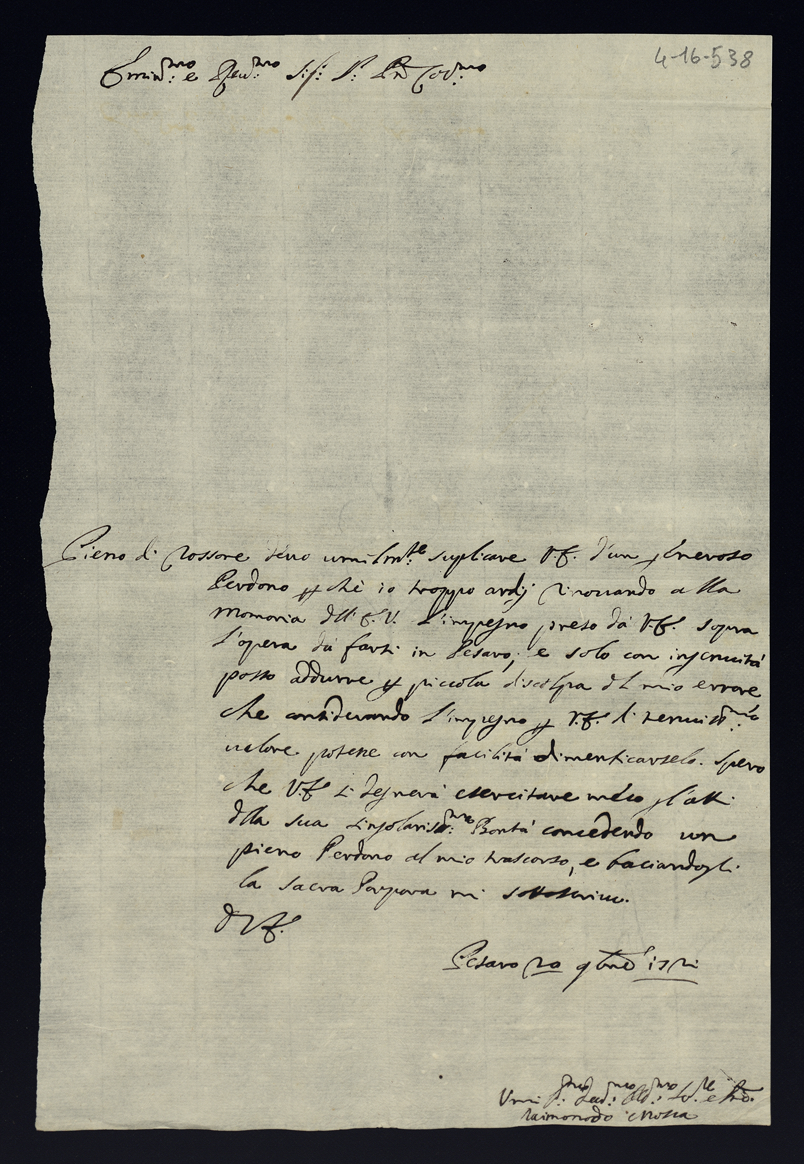 4-16-538
Emin.mo e Reu.mo S:r: P: Prn̄ Col.mo
Pieno di rossore deuo umilm.te suplicare V.E. d'un generoso
Perdono p che io troppo ardij rinouando alla
memoria dell'E.V. l'impegno preso da V.E. sopra
l'opera da farsi in Pesaro; e solo con ingenuità
posso addurre p piccola discolpa del mio errore
che considerando l'impegno p V.E. di
ualore potesse con facilità dimenticarselo. Spero
che V.E. si degnerà esercitare meco gl'atti
della sua singolariss.ma Bontà concedendo un
pieno Perdono al mio trascorso, e baciandogli
la Sacra Porpora mi sottoscriuo.
D V.E.
Pesaro 20 9bre 1721
Umi.mo Deu.mo Obl.mo Se.re
Raimondo Mosca